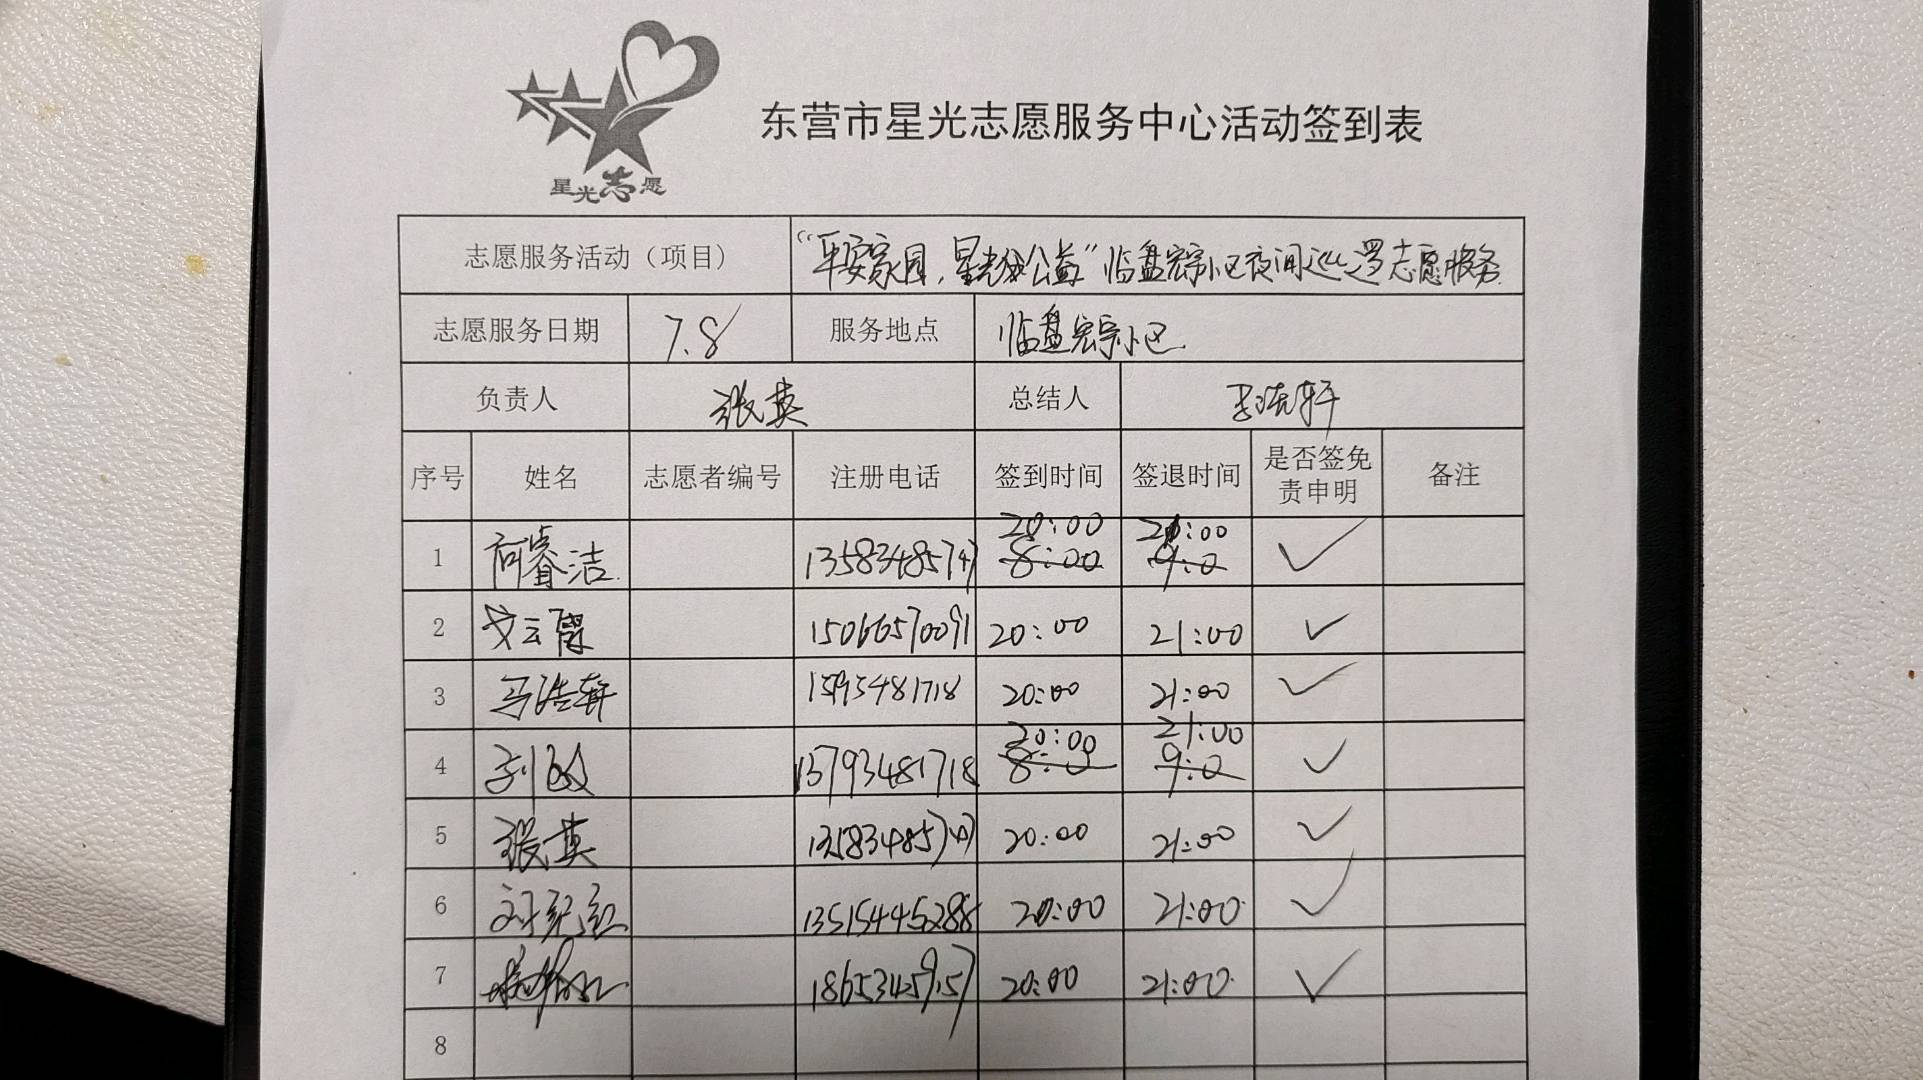 星光志愿
东营市星光志愿服务中心活动签到表
志愿服务活动（项目） "平安家园，星光公益"临盘宏宗小区夜间巡逻志愿服务
志愿服务日期 7.8 服务地点 临盘宏宗小区
负责人 张英 总结人
序号 姓名 志愿者编号 注册电话 签到时间 签退时间 是否签免责申明 备注
1 何睿洁 13583485747 20:00 8:00 21:00 9:0 ✓
2 15066570091 20:00 21:00 ✓
3 马浩轩 15954481718 20:00 21:00 ✓
4 刘敏 13793481718 20:00 8:0 21:00 9:0 ✓
5 张英 13583485747 20:00 21:00 ✓
6 13515445288 20:00 21:00 ✓
7 18653459157 20:00 21:00 ✓
8